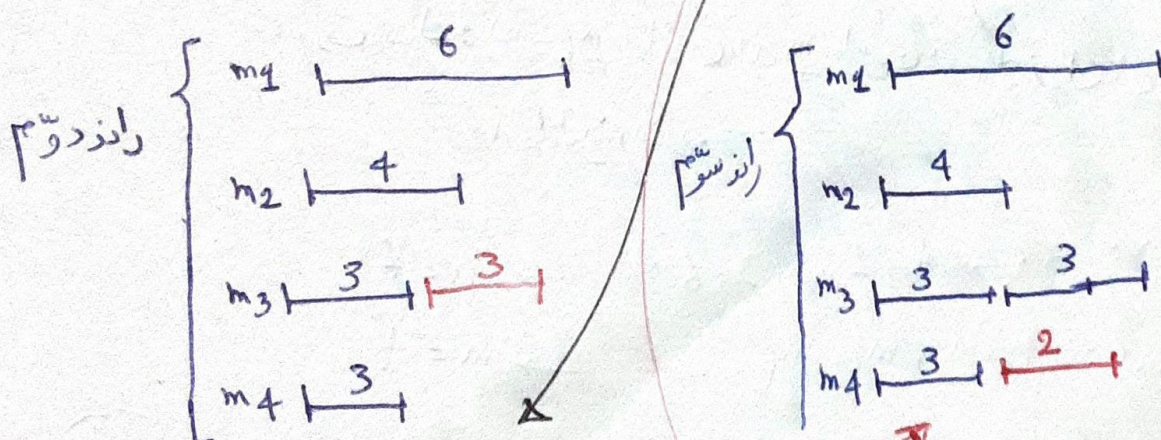 راند دوّم
m1 6
m2 4
m3 3 3
m4 3
راند سوّم
m1 6
m2 4
m3 3 3
m4 3 2